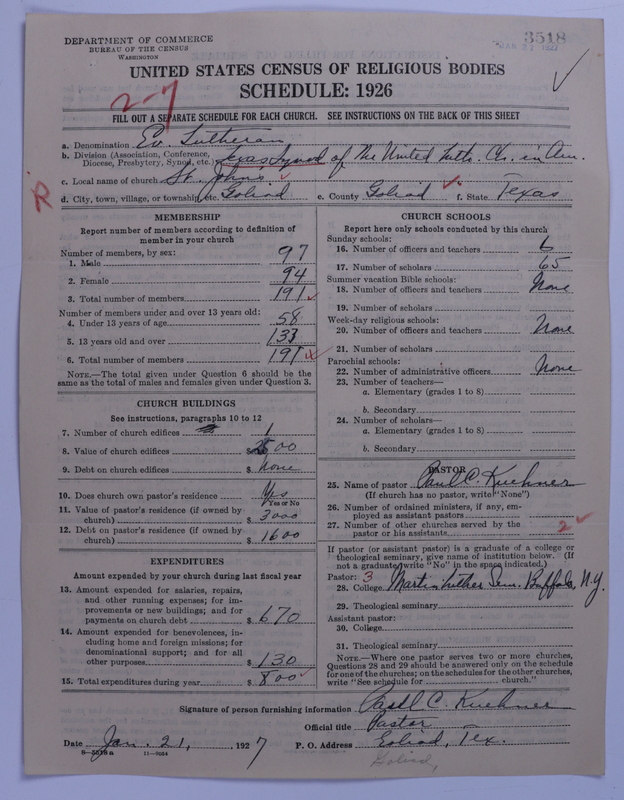 DEPARTMENT OF COMMERCE
BUREAU OF THE CENSUS
WASHINGTON
3518
UNITED STATES CENSUS OF RELIGIOUS BODIES
SCHEDULE: 1926
2-7
FILL OUT A SEPARATE SCHEDULE FOR EACH CHURCH. SEE INSTRUCTIONS ON THE BACK OF THIS SHEET
a. Denomination Ev. Lutheran
b. Division (Association, Conference, Diocese, Presbytery, Synod, etc.) Texas Synod of The United Luth. Ch. in Am.
c. Local name of church St. Johns
d. City, town, village, or township, etc. Goliad e. County Goliad f. State Texas
MEMBERSHIP
Report number of members according to definition of
member in your church
Number of members, by sex:
1. Male 97
2. Female 94
3. Total number of members 191
Number of members under and over 13 years old:
4. Under 13 years of age 58
5. 13 years old and over 133
6. Total number of members 191
NOTE.—The total given under Question 6 should be the
same as the total of males and females given under Question 3.
CHURCH BUILDINGS
See instructions, paragraphs 10 to 12
7. Number of church edifices 1
8. Value of church edifices $ 00
9. Debt on church edifices $ None
10. Does church own pastor's residence Yes
Yes or No
11. Value of pastor's residence (if owned by
church) $ 3000
12. Debt on pastor's residence (if owned by
church) $ 1600
EXPENDITURES
Amount expended by your church during last fiscal year
13. Amount expended for salaries, repairs,
and other running expenses; for im-
provements or new buildings; and for
payments on church debt $ 670
14. Amount expended for benevolences, in-
cluding home and foreign missions; for
denominational support; and for all
other purposes $ 130
15. Total expenditures during year $ 800
CHURCH SCHOOLS
Report here only schools conducted by this church
Sunday schools:
16. Number of officers and teachers 6
17. Number of scholars 65
Summer vacation Bible schools:
18. Number of officers and teachers None
19. Number of scholars
Week-day religious schools:
20. Number of officers and teachers None
21. Number of scholars
Parochial schools:
22. Number of administrative officers None
23. Number of teachers—
a. Elementary (grades 1 to 8)
b. Secondary
24. Number of scholars—
a. Elementary (grades 1 to 8)
b. Secondary
PASTOR
25. Name of pastor Paul C. Kuehner
(If church has no pastor, write "None")
26. Number of ordained ministers, if any, em-
ployed as assistant pastors
27. Number of other churches served by the
pastor or his assistants 2
If pastor (or assistant pastor) is a graduate of a college or
theological seminary, give name of institution below. (If
not a graduate write "No" in the space indicated.)
Pastor: 3
28. College Martin Luther Sem. Buffalo, N.Y.
29. Theological seminary
Assistant pastor:
30. College
31. Theological seminary
NOTE.—Where one pastor serves two or more churches,
Questions 28 and 29 should be answered only on the schedule
for one of the churches; on the schedules for the other churches,
write "See schedule for church."
Signature of person furnishing information Paul C. Kuehner
Official title Pastor
Date Jan. 21, 1927 P. O. Address Goliad, Tex.
11—9264
Goliad,